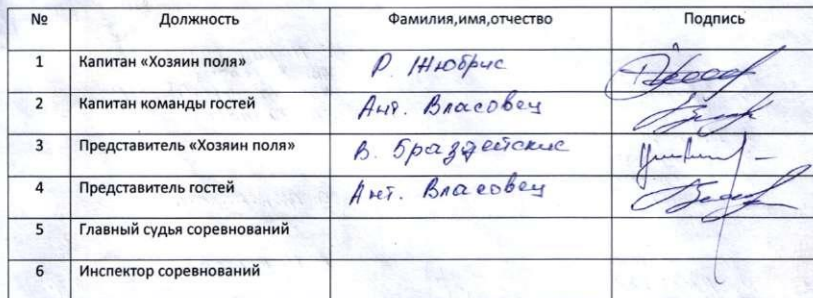 № Должность Фамилия,имя,отчество Подпись
1 Капитан «Хозяин поля» Р. Жюбрис
2 Капитан команды гостей Ант. Власовец
3 Представитель «Хозяин поля» В. Браздейскис
4 Представитель гостей Ант. Власовец
5 Главный судья соревнований
6 Инспектор соревнований